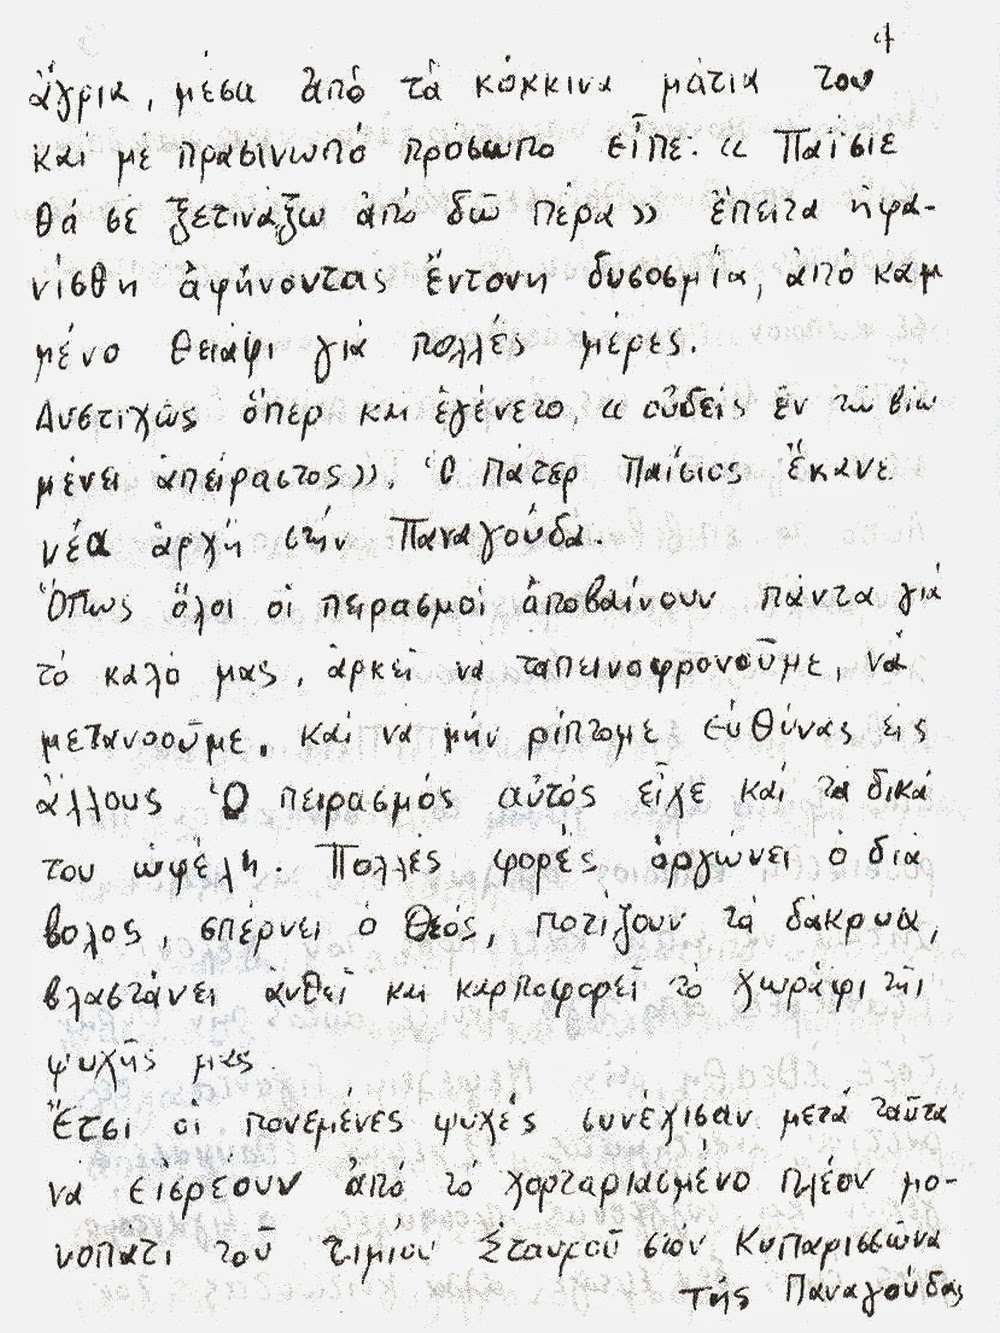 4
ἄγρια, μέσα ἀπό τά κόκκινα μάτια του
καί μέ πρασινωπό πρόσωπο εἶπε: « Παΐσιε
θά σέ ξετινάξω ἀπό δῶ πέρα» ἔπειτα ἠφα-
νίσθη ἀφήνοντας ἔντονη δυσοσμία, ἀπό καμ
μένο θειάφι γιά πολλές μέρες.
Δυστιχῶς ὅπερ και ἐγένετο, « οὐδείς ἐν τω βίω
μένει ἀπείραστος». Ὁ Πάτερ Παΐσιος ἔκανε
νέα ἀρχή στήν Παναγούδα.
Ὅπως ὅλοι οἱ πειρασμοί ἀποβαίνουν πάντα γιά
τό καλό μας, ἀρκεῖ νά ταπεινοφρονοῦμε, νά
μετανοοῦμε, καί νά μήν ρίπτομε εὐθύνας εἰς
ἄλλους Ὁ πειρασμός αὐτός εἶχε καί τά δικά
του ὠφέλη. Πολλές φορές ὀργώνει ὁ διά
βολος, σπέρνει ὁ Θεός, ποτίζουν τά δάκρυα,
βλαστάνει ἀνθεῖ και καρποφορεῖ τό χωράφι τῆς
ψυχῆς μας.
Ἔτσι οἱ πονεμένες ψυχές συνέχισαν μετά ταῦτα
νά εἰσρέουν ἀπό τό χορταριασμένο πλέον μο-
νοπάτι τοῦ τιμίου Σταυροῦ στόν Κυπαρισσώνα
τῆς Παναγούδας